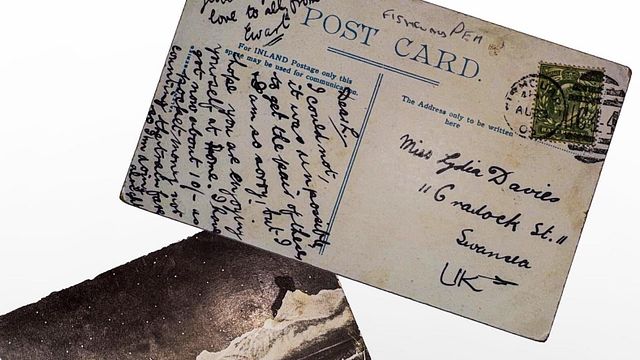 love to all, from
Ewart
POST CARD.
FISHGUARD
For INLAND Postage only this
space may be used for communication.
The Address only to be written
here
Dear L.
I could not,
it was impossible
to get the pair of these
I am so sorry, but I
hope you are enjoying
yourself at home. I have
got now about 10/- as
pocket-money not
counting the train fare
so I'm doing
alright
Miss Lydia Davies
"11 Cradock St."
Swansea
UK